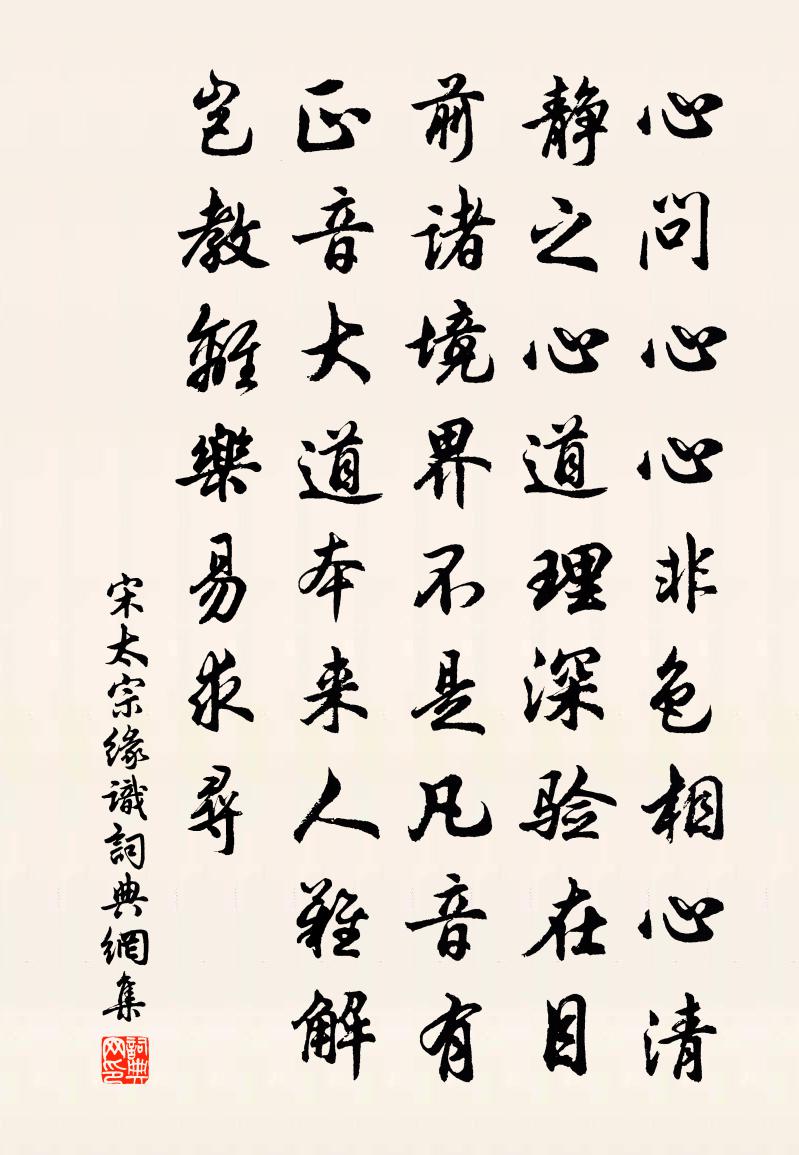 心问心心非色相心清
静之心道理深验在目
前诸境界不是凡音有
正音大道本来人难解
岂教离乐易求寻
宋太宗缘識詞典網集
詞典网印